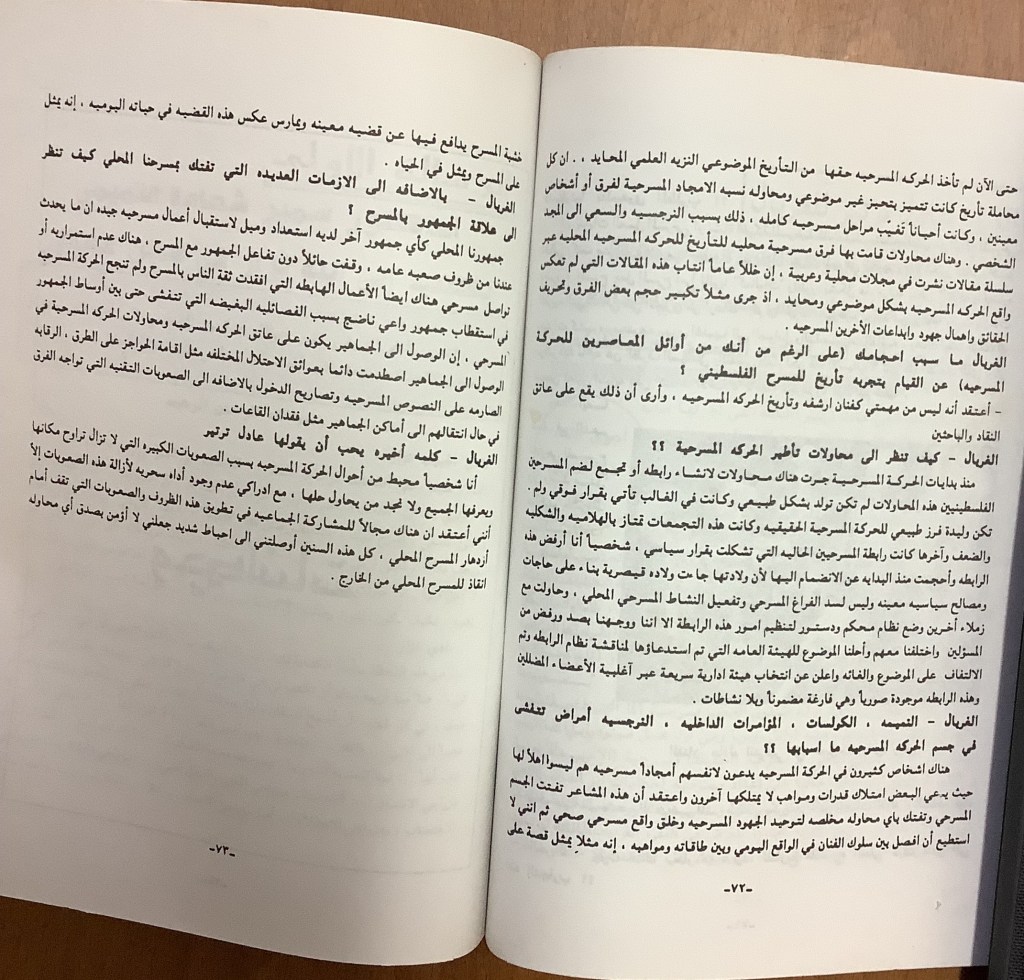 حتى الآن لم تأخذ الحركه المسرحيه حقها من التأريخ الموضوعي النزيه العلمي المحايد ، . ان كل
محاملة تأريخ كانت تتميز بتحيز غير موضوعي ومحاوله نسبه الامجاد المسرحية لفرق أو أشخاص
معينين ، وكانت أحياناً تَغيّب مراحل مسرحيه كامله ، ذلك بسبب النرجسيه والسعي الى المجد
الشخصي . وهناك محاولات قامت بها فرق مسرحية محليه للتأريخ للحركه المسرحيه المحليه عبر
سلسلة مقالات نشرت في مجلات محلية وعربية ، إن خللاً عاماً انتاب هذه المقالات التي لم تعكس
واقع الحركه المسرحيه بشكل موضوعي ومحايد ، اذ جرى مثلاً تكبير حجم بعض الفرق وتحريف
الحقائق واهمال جهود وإبداعات الأخرين المسرحيه .
الغربال ما سبب احجامك (على الرغم من أنك من أوائل المعاصرين للحركة
المسرحيه) عن القيام بتجربه تأريخ للمسرح الفلسطيني ؟
– أعتقد أنه ليس من مهمتي كفنان ارشفه وتأريخ الحركه المسرحيه ، وأرى أن ذلك يقع على عاتق
النقاد والباحثين
الغربال – كيف تنظر الى محاولات تأطير الحركه المسرحية ؟؟
منذ بدايات الحركة المسرحية جرت هناك محاولات لانشاء رابطه أو تجمع لضم المسرحين
الفلسطينيين هذه المحاولات لم تكن تولد بشكل طبيعي وكانت في الغالب تأتي بقرار فوقي ولم .
تكن وليدة فرز طبيعي للحركة المسرحية الحقيقيه وكانت هذه التجمعات تمتاز بالهلاميه والشكليه
والضعف وآخرها كانت رابطة المسرحيين الحاليه التي تشكلت بقرار سياسي ، شخصياً أنا أرفض هذه
الرابطه وأحجمت منذ البدايه عن الانضمام اليها لأن ولادتها جاءت ولاده قيصرية بناء على حاجات
ومصالح سياسيه معينه وليس لسد الفراغ المسرحي وتفعيل النشاط المسرحي المحلي ، وحاولت مع
زملاء أخرين وضع نظام محكم ودستور لتنظيم امور هذه الرابطة الا اننا ووجهنا بصد ورفض من
المسؤلين واختلفنا معهم وأحلنا الموضوع للهيئة العامه التي تم استدعاؤها لمناقشة نظام الرابطه وتم
الالتفاف على الموضوع والغائه واعلن عن انتخاب هيئة ادارية سريعة عبر آغلبية الأعضاء المضللين
وهذه الرابطه موجودة صورياً وهي فارغة مضموناً وبلا نشاطات .
الغربال – النميمه ، الكولسات ، المؤامرات الداخليه ، النرجسيه أمراض تتفشى
في جسم الحركه المسرحيه ما اسبابها ؟؟
هناك اشخاص كثيرون في الحركة المسرحيه يدعون لانفسهم أمجاداً مسرحيه هم ليسوا اهلاً لها
حيث يدعي البعض امتلاك قدرات ومواهب لا يمتلكها آخرون واعتقد أن هذه المشاعر تفتت الجسم
المسرحي وتفتك باي محاوله مخلصه لتوحيد الجهود المسرحيه وخلق واقع مسرحي صحي ثم انني لا
استطيع أن افصل بين سلوك الفنان في الواقع اليومي وبين طاقاته ومواهبه ، إنه مثلاً يمثل قصة على
-٧٢-
خشبة المسرح يدافع فيها عن قضيه معينه ويمارس عكس هذه القضيه في حياته اليوميه ، إنه يمثل
على المسرح ويمثل في الحياه .
الغربال – بالاضافه الى الازمات العديده التي تفتك بمسرحنا المحلي كيف تنظر
الى علاقة الجمهور بالمسرح ؟
جمهورنا المحلي كأي جمهور آخر لديه استعداد وميل لاستقبال أعمال مسرحيه جيده ان ما يحدث
عندنا من ظروف صعبه عامه ، وقفت حائلاً دون تفاعل الجمهور مع المسرح ، هناك عدم استمراريه أو
تواصل مسرحي هناك ايضاً الأعمال الهابطه التي افقدت ثقة الناس بالمسرح ولم تنجح الحركة المسرحيه
في استقطاب جمهور واعي ناضج بسبب الفصائليه البغيضه التي تتفشى حتى بين أوساط الجمهور
المسرحي ، إن الوصول الى الجماهير يكون على عاتق الحركه المسرحيه ومحاولات الحركه المسرحية في
الوصول الى الجماهير اصطدمت دائما بعوائق الاحتلال المختلفه مثل اقامة الحواجز على الطرق ، الرقابه
الصارمه على النصوص المسرحيه وتصاريح الدخول بالاضافه الى الصعوبات التقنيه التي تواجه الفرق
في حال انتقالهم الى أماكن الجماهير مثل فقدان القاعات .
الغربال – كلمه أخيره يحب أن يقولها عادل ترتير
أنا شخصياً محبط من أحوال الحركة المسرحيه بسبب الصعوبات الكبيره التي لا تزال تراوح مكانها
ويعرفها الجميع ولا نجد من يحاول حلها ، مع ادراكي عدم وجود أداه سحريه لأزالة هذه الصعوبات إلاّ
أنني أعتقد ان هناك مجالاً للمشاركة الجماعيه في تطويق هذه الظروف والصعوبات التي تقف أمام
أزدهار المسرح المحلي ، كل هذه السنين أوصلتني الى احباط شديد جعلني لا أؤمن بصدق أي محاوله
انقاذ للمسرح المحلي من الخارج .
-٧٣-